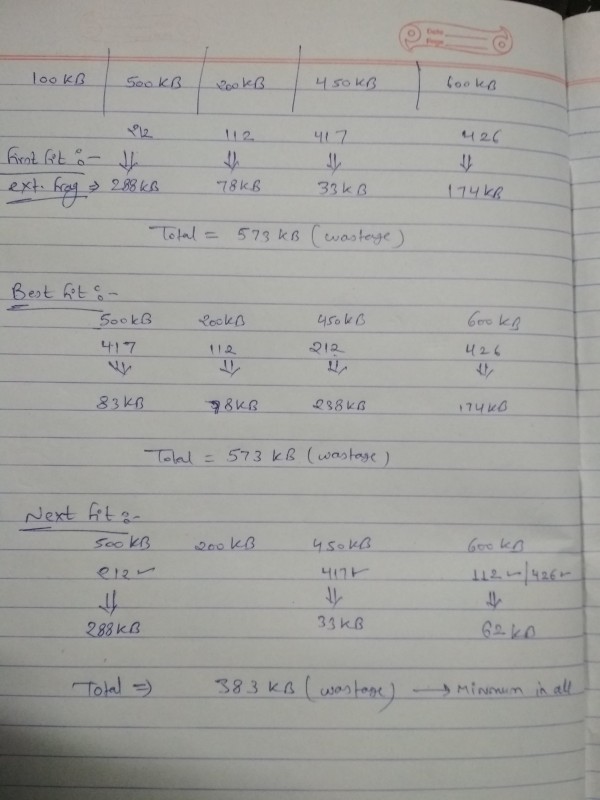 Date
Page
100KB 500KB 200KB 450KB 600KB
212 112 417 426
First fit :-
ext. frag ⇒ 288KB 78KB 33KB 174KB
Total = 573 KB (wastage)
Best fit :-
500KB 200KB 450KB 600KB
417 112 212 426
83KB 78KB 238KB 174KB
Total = 573 KB (wastage)
Next fit :-
500KB 200KB 450KB 600KB
212 ✓ 417 ✓ 112 ✓ / 426 ✓
288KB 33KB 62KB
Total ⇒ 383 KB (wastage) → Minimum in all